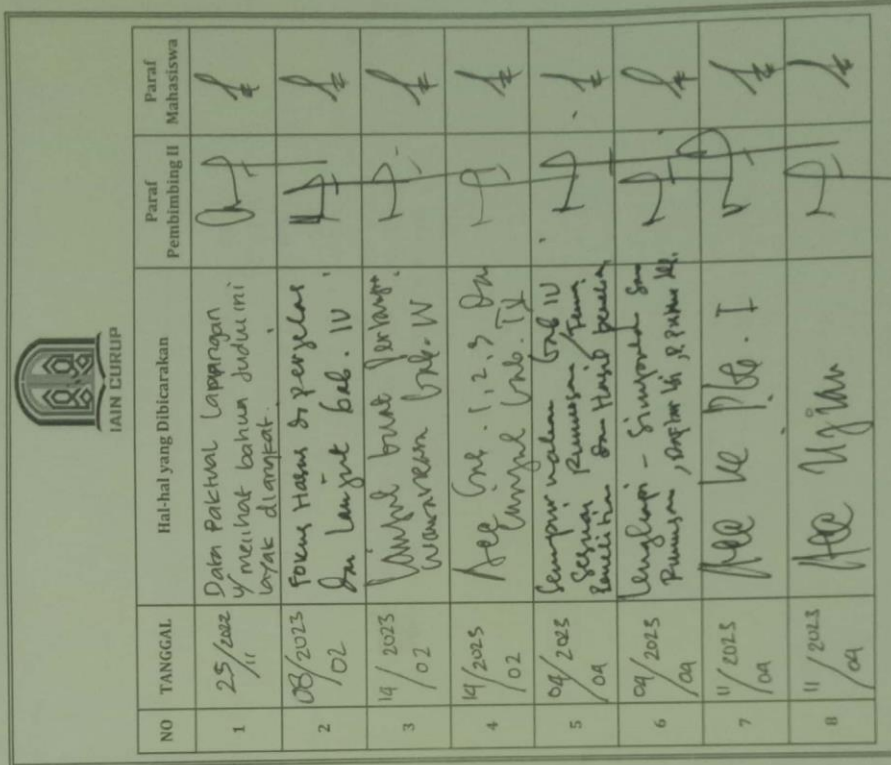 IAIN CURUP
NO TANGGAL Hal-hal yang Dibicarakan Paraf Pembimbing II Paraf Mahasiswa
1 25/2022 11 Data Paktual Lapangan
y melihat bahwa Judul ini
layak diangkat.
2 08/2023 02 Fokus Harus diperjelas
dan lanjut bab. IV.
3 14/2023 02 Lanjut buat Pertanyaan
wawancara bab. IV
4 14/2023 02 Acc bab. 1, 2, 3 dan
lanjut bab. IV
5 09/2023 09 Sempurnakan bab IV
Sesuai Rumusan /
Penelitian dan Hasil penelitian
6 09/2023 09 Lengkapi - Simpulan
Rumusan, daftar isi,
7 11/2023 09 Acc ke Pbb. I
8 11/2023 09 Acc Ujian